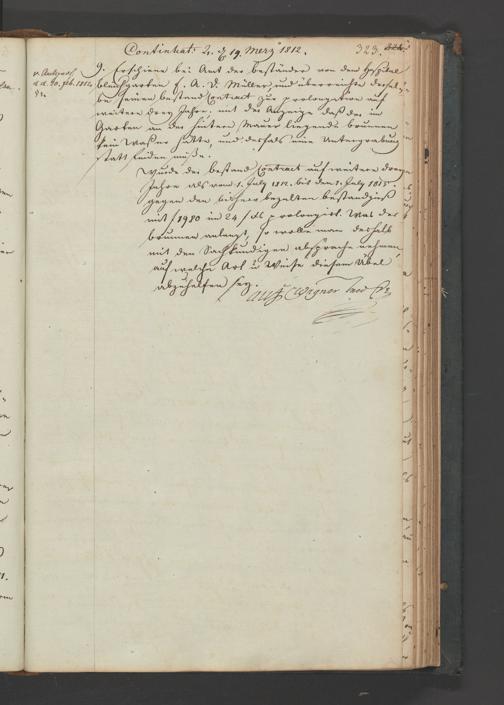 Continuat: 2. d. 19. Merz 1812.
323.
v. Aulgausch
d. d. 20. feb. 1812,
9. Erschiene bei Amt der beständer von dem Hospital
bleichgarten H. A. D. Müller, und überreichte dersel-
be seinen bestand Contract zur prolongation auf
weitere drey Jahre. mit der Anzeige daß der im
Garten an der hintern Mauer liegende brunnen
kein Waßer hätte, und deshalb eine Untergrabung
statt finden müße.
Wurde der bestand Contract auf weitere drey
Jahre als vom 1. July 1812. bis den 1. July 1815.
gegen den bisher bezahlten bestandzinß
mit f 1980 in 24 f prolongirt. Was der
brunnen anlangt, so wolle man deshalb
mit den Sachkundigen absprache nehmen,
auf welche Art u Weise diesem Übel
abzuhelfen sey.
Wagner